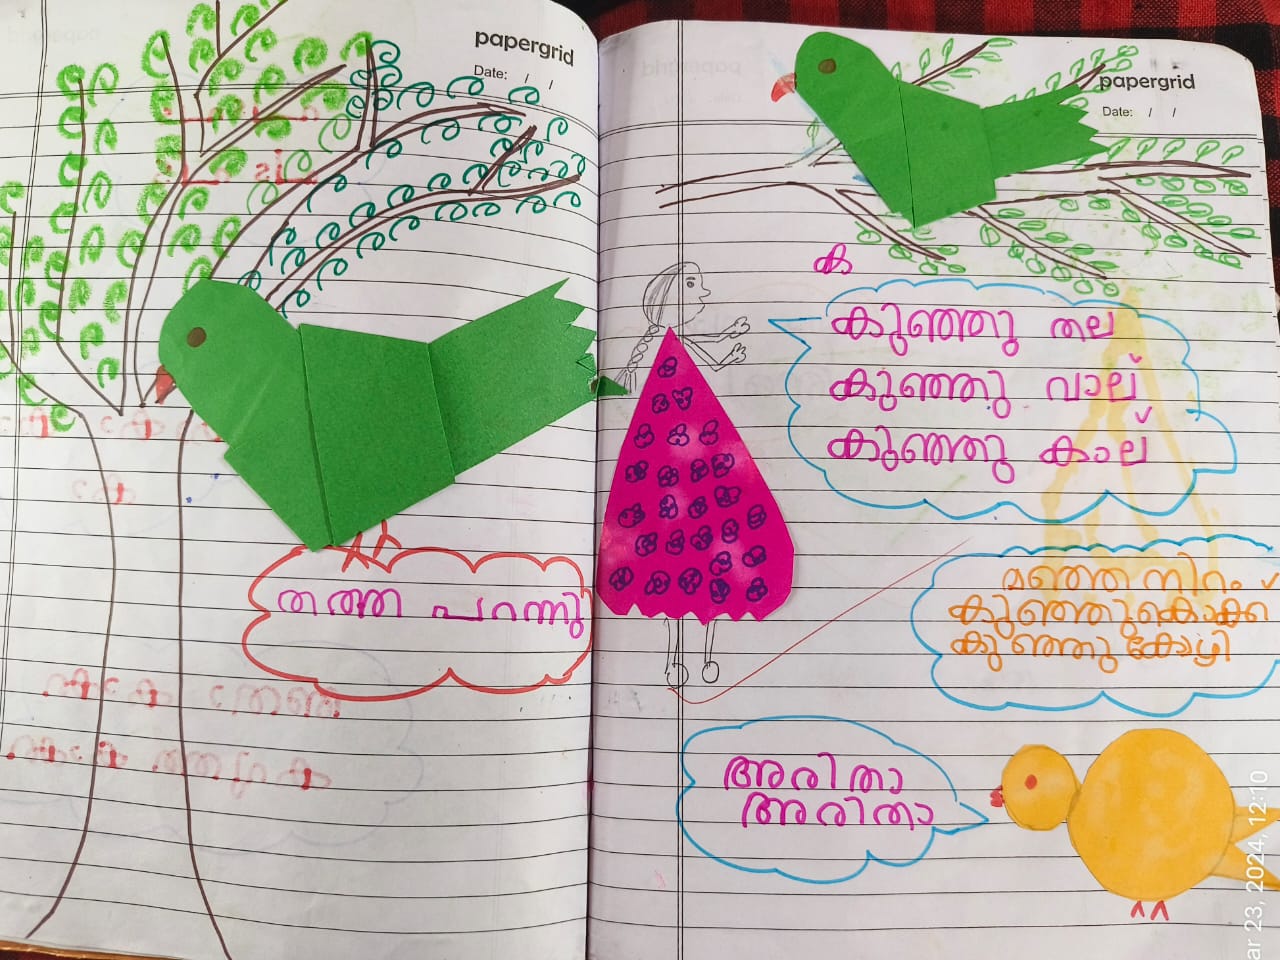 papergrid
Date: / /
തത്ത പറന്നു
papergrid
Date: / /
ക
കുഞ്ഞു തല
കുഞ്ഞു വാല്
കുഞ്ഞു കാല്
മഞ്ഞ നിറം
കുഞ്ഞുകൊക്ക
കുഞ്ഞു കോഴി
അരി താ
അരിതാ
ar 23, 2024, 12:10